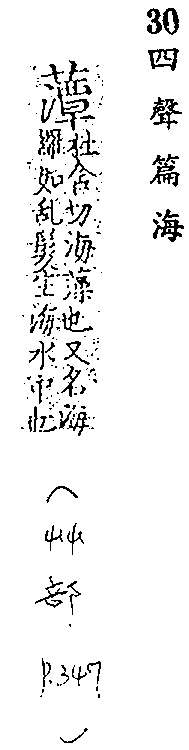 30 四聲篇海
藫
杜含切海藻也又名海
羅如乱髮生海水中
(艸部. P.347)